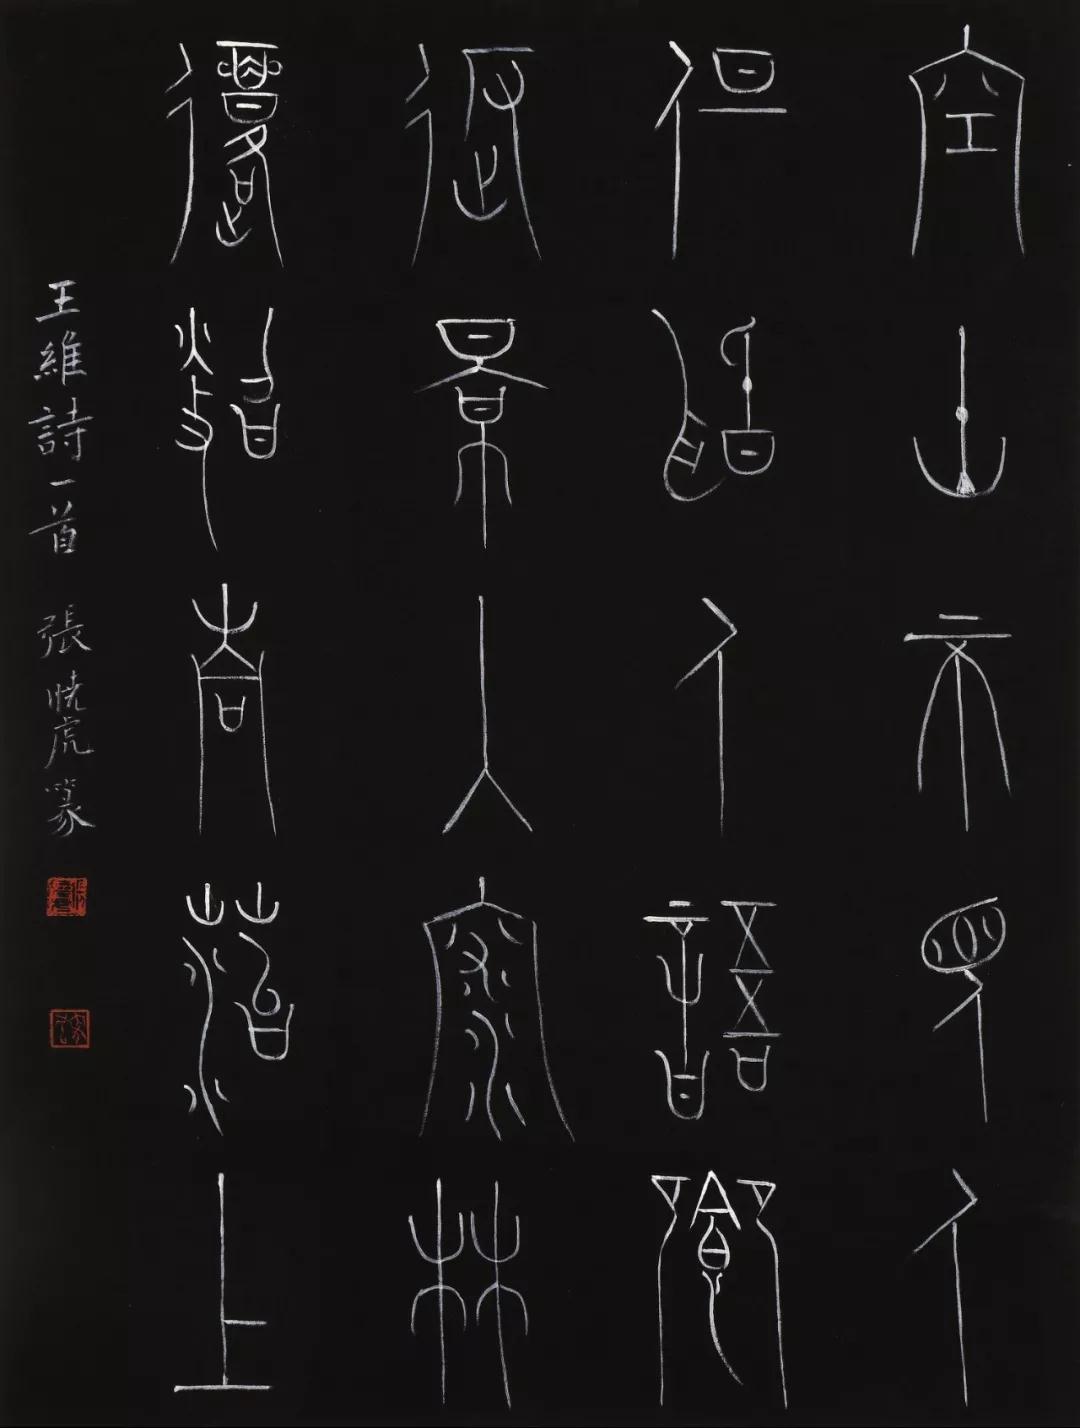 空山不見人
但聞人語響
返景入深林
復照青苔上
王維詩一首 張曉虎篆